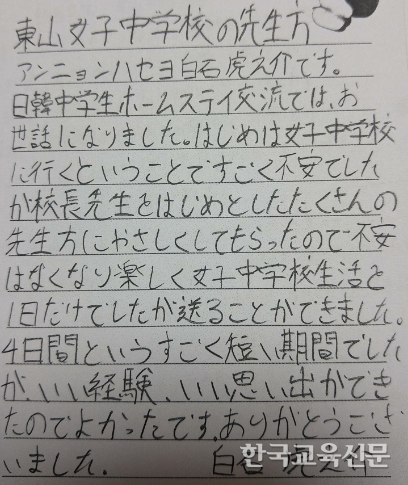 東山女子中学校の先生方
アンニョンハセヨ白石虎之介です。
日韓中学生ホームステイ交流では、お
世話になりました。はじめは女子中学校
に行くということですごく不安でした
が校長先生をはじめとしたたくさんの
先生方にやさしくしてもらったので不安
はなくなり楽しく女子中学校生活を
1日だけでしたが送ることができました。
4日間というすごく短い期間でした
が、いい経験、いい思い出ができ
たのでよかったです。ありがとうござ
いました。 白石虎之介
한국교육신문